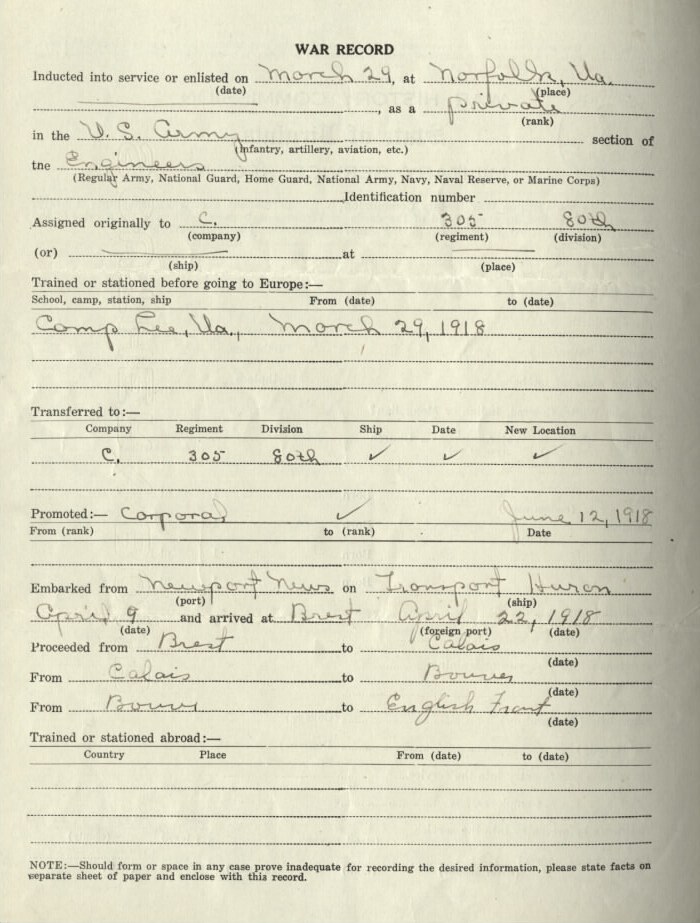 WAR RECORD
Inducted into service or enlisted on March 29, at Norfolk, Va.
(date) (place)
, as a private
(rank)
in the U. S. Army section of
(Infantry, artillery, aviation, etc.)
tne Engineers
(Regular Army, National Guard, Home Guard, National Army, Navy, Naval Reserve, or Marine Corps)
Identification number
Assigned originally to C. 305 80th
(company) (regiment) (division)
(or) at
(ship) (place)
Trained or stationed before going to Europe:—
School, camp, station, ship From (date) to (date)
Camp Lee, Va., March 29, 1918
Transferred to:—
Company Regiment Division Ship Date New Location
C. 305 80th ✓ ✓ ✓
Promoted:— Corporal ✓ June 12, 1918
From (rank) to (rank) Date
Embarked from Newport News on Transport Huron
(port) (ship)
April 9 and arrived at Brest April 22, 1918
(date) (foreign port) (date)
Proceeded from Brest to Calais
(date)
From Calais to
(date)
From to English Front
(date)
Trained or stationed abroad:—
Country Place From (date) to (date)
NOTE:—Should form or space in any case prove inadequate for recording the desired information, please state facts on
separate sheet of paper and enclose with this record.